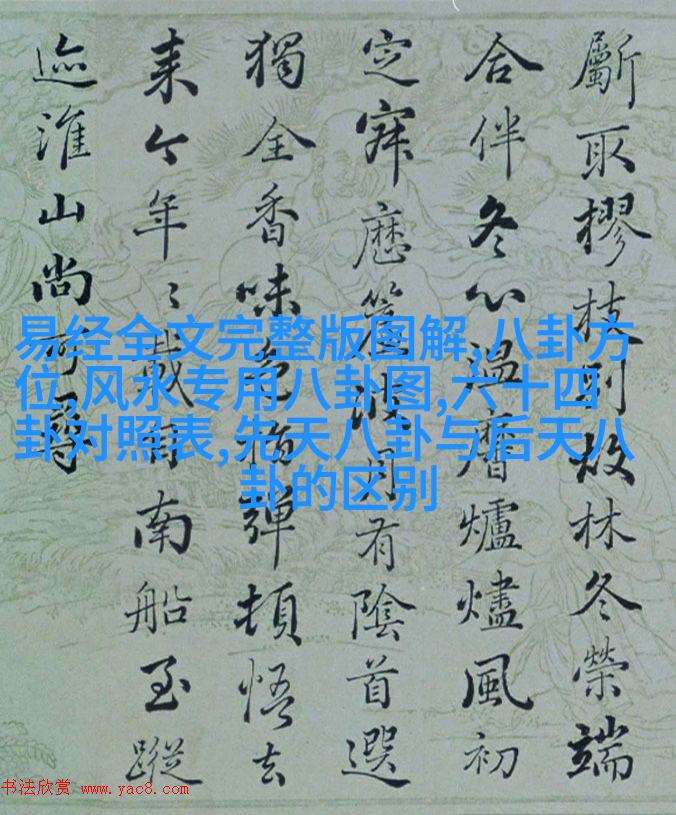 斸取樛枝別故林冬榮端
合伴冬心温磨爐燼風初
定寐歷籩浪月有陰首選
獨全香味色獨彈頓悟去
来今年〻載宵南船至蹤
迹淮山尚可尋
易经全文完整版图解,八卦方
位,风水专用八卦图,六十四
卦对照表,先天八卦与后天八
卦的区别
书法欣赏 www.yac8.com